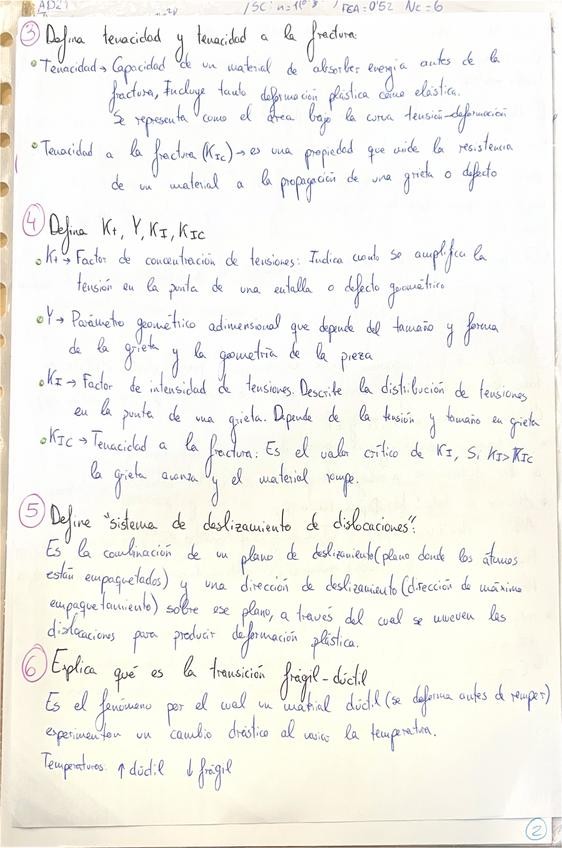 SC: n=
FCA=0'52 Nc=6
③ Defina tenacidad y tenacidad a la fractura:
• Tenacidad → Capacidad de un material de absorber energía antes de la
fractura, Incluye tanto deformación plástica como elástica.
Se representa como el área bajo la curva tensión-deformación
• Tenacidad a la fractura (KIC) → es una propiedad que mide la resistencia
de un material a la propagación de una grieta o defecto
④ Defina Kt, Y, KI, KIC
• Kt → Factor de concentración de tensiones: Indica cuanto se amplifica la
tensión en la punta de una entalla o defecto geométrico
• Y → Parámetro geométrico adimensional que depende del tamaño y forma
de la grieta y la geometría de la pieza
• KI → Factor de intensidad de tensiones. Describe la distribución de tensiones
en la punta de una grieta. Depende de la tensión y tamaño en grieta
• KIC → Tenacidad a la fractura: Es el valor crítico de KI, Si KI>KIC
la grieta avanza y el material rompe.
⑤ Define "sistema de deslizamiento de dislocaciones":
Es la combinación de un plano de deslizamiento (plano donde los átomos
están empaquetados) y una dirección de deslizamiento (dirección de máximo
empaquetamiento) sobre ese plano, a través del cual se mueven las
dislocaciones para producir deformación plástica.
⑥ Explica qué es la transición frágil-dúctil
Es el fenómeno por el cual un matrial dúctil (se deforma antes d romper)
experimentan un cambio drástico al variar la temperatura.
Temperaturas: ↑ dúctil ↓ frágil
②